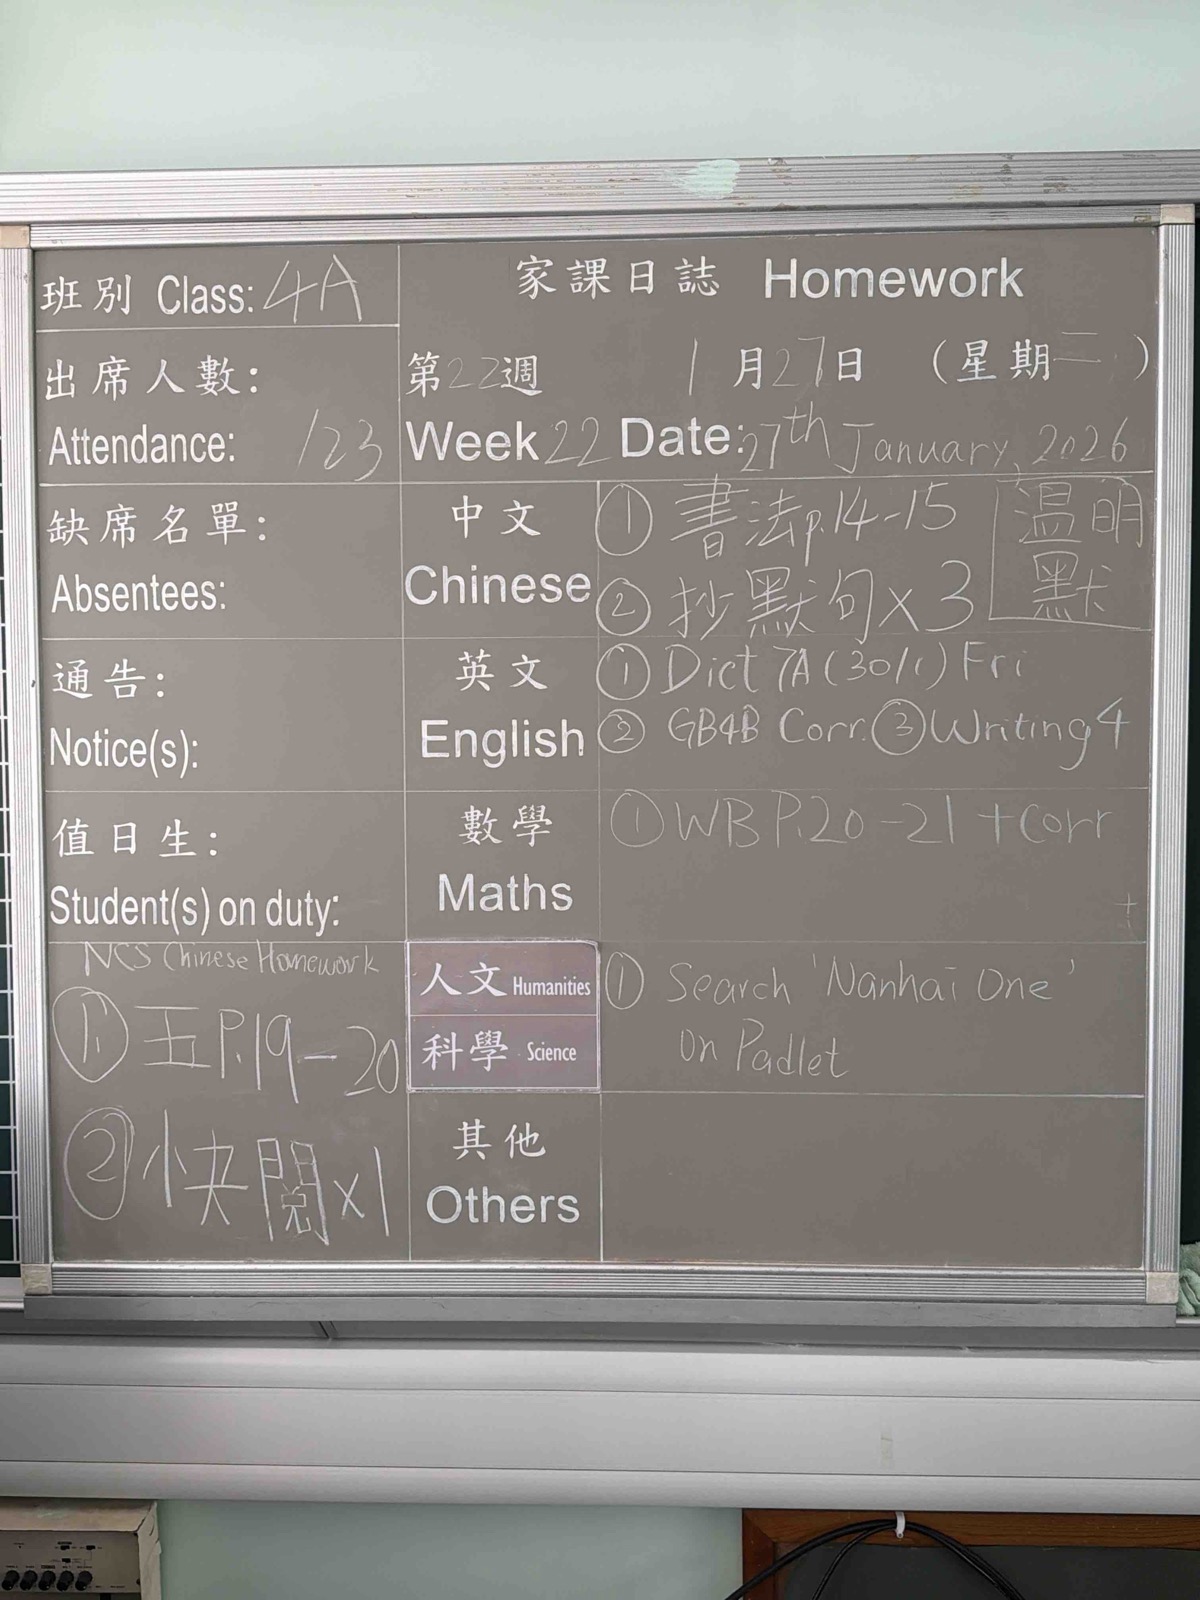 班別 Class: 4A
家課日誌 Homework
出席人數:
Attendance: /23
第22週 1月27日 (星期二)
Week 22 Date: 27th January, 2026
缺席名單:
Absentees:
中文
Chinese
① 書法p.14-15
② 抄默句x3
溫明
默
通告:
Notice(s):
英文
English
① Dict 7A (30/1) Fri
② GB4B Corr. ③ Writing 4
值日生:
Student(s) on duty:
數學
Maths
① WB P.20-21 + Corr
NCS Chinese Homework
① 五P.19-20
② 快閱x1
人文 Humanities
科學 Science
① Search 'Nanhai One'
on Padlet
其他
Others